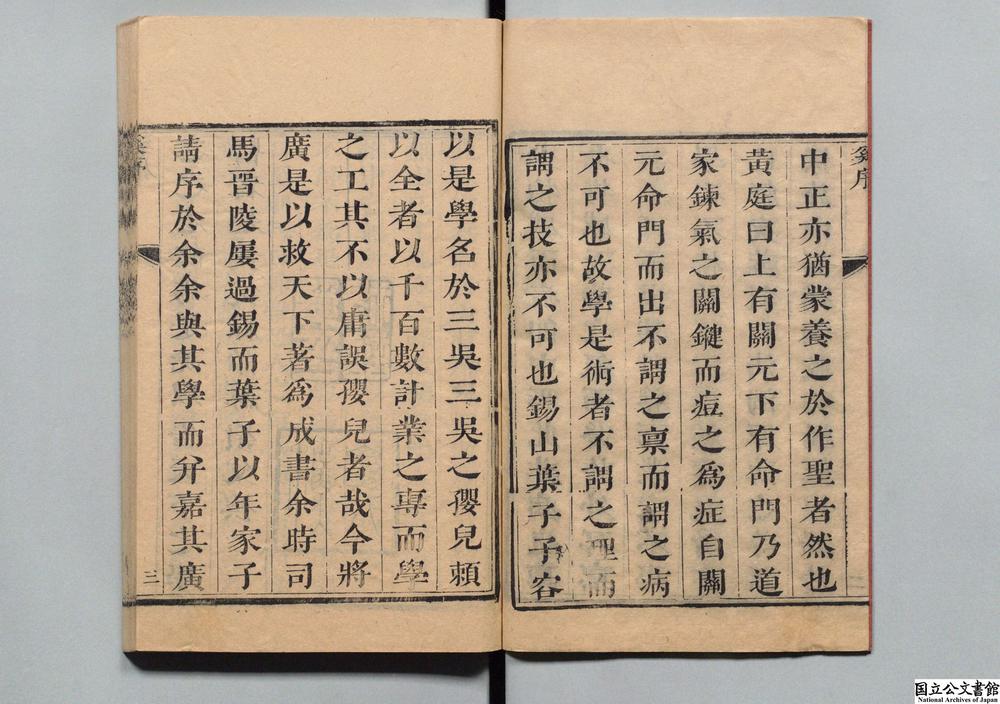 中正亦猶蒙養之於作聖者然也
黃庭曰上有關元下有命門乃道
家鍊氣之關鍵而痘之爲症自關
元命門而出不謂之禀而謂之病
不可也故學是術者不謂之理而
謂之技亦不可也錫山葉子子容
以是學名於三吳三吳之孾兒賴
以全者以千百數計業之專而學
之工其不以庸誤孾兒者哉今將
廣是以救天下著爲成書余時司
馬晉陵屢過錫而葉子以年家子
請序於余余與其學而弁嘉其廣
三
国立公文書館
National Archives of Japan